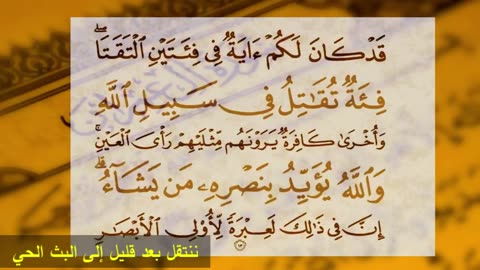 قَدْ كَانَ لَكُمْ ءَايَةٌ فِى فِئَتَيْنِ ٱلْتَقَتَا ۖ
فِئَةٌ تُقَـٰتِلُ فِى سَبِيلِ ٱللَّهِ
وَأُخْرَىٰ كَافِرَةٌ يَرَوْنَهُم مِّثْلَيْهِمْ رَأْىَ ٱلْعَيْنِ ۚ
وَٱللَّهُ يُؤَيِّدُ بِنَصْرِهِۦ مَن يَشَآءُ ۗ
إِنَّ فِى ذَٰلِكَ لَعِبْرَةً لِّأُو۟لِى ٱلْأَبْصَـٰرِ
ننتقل بعد قليل إلى البث الحي